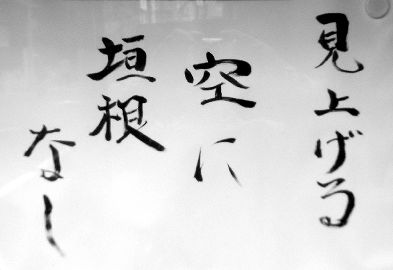 見上げる
空に
垣根
なし